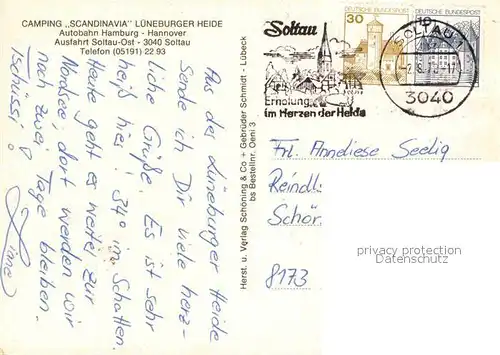 CAMPING „SCANDINAVIA" LÜNEBURGER HEIDE
Autobahn Hamburg - Hannover
Ausfahrt Soltau-Ost - 3040 Soltau
Telefon (05191) 22 93
Aus der Lüneburger Heide
sende ich Dir viele herz-
liche Grüße. Es ist sehr
heiß hier! 34° im Schatten.
Heute geht es weiter zur
Nordsee, dort werden wir
noch zwei Tage bleiben.
Tschüssi!
Herst. u. Verlag Schöning & Co + Gebrüder Schmidt - Lübeck
bs Bestellnr. Oeni 3
Soltau
Erholung
im Herzen der Heide
DEUTSCHE BUNDESPOST
30
DEUTSCHE BUNDESPOST
10
SOLTAU 1
3040
Frl. Anneliese Seelig
Reindl
Schör
8173
privacy protection
Datenschutz